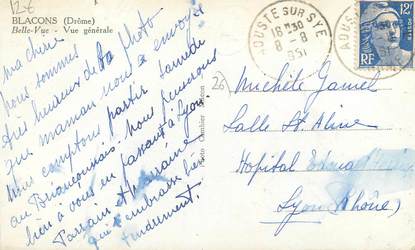 12€
BLACONS (Drôme)
Belle-Vue - Vue générale
Ma chérie
Nous sommes
très heureux de ta photo
que maman nous a envoyé
Nous comptons partir samedi
au Briançonnais. Nous penserons
bien à vous en passant à Lyon.
Parrain et marraine
qui t'embrasse bien
tendrement.
Photo Combier Macon
AOUSTE SUR SYE
18H30
8-8
1951
AOUSTE
12F
RF
26
Michèle Gamet
Salle St. Aline
Hopital
Lyon (Rhône)